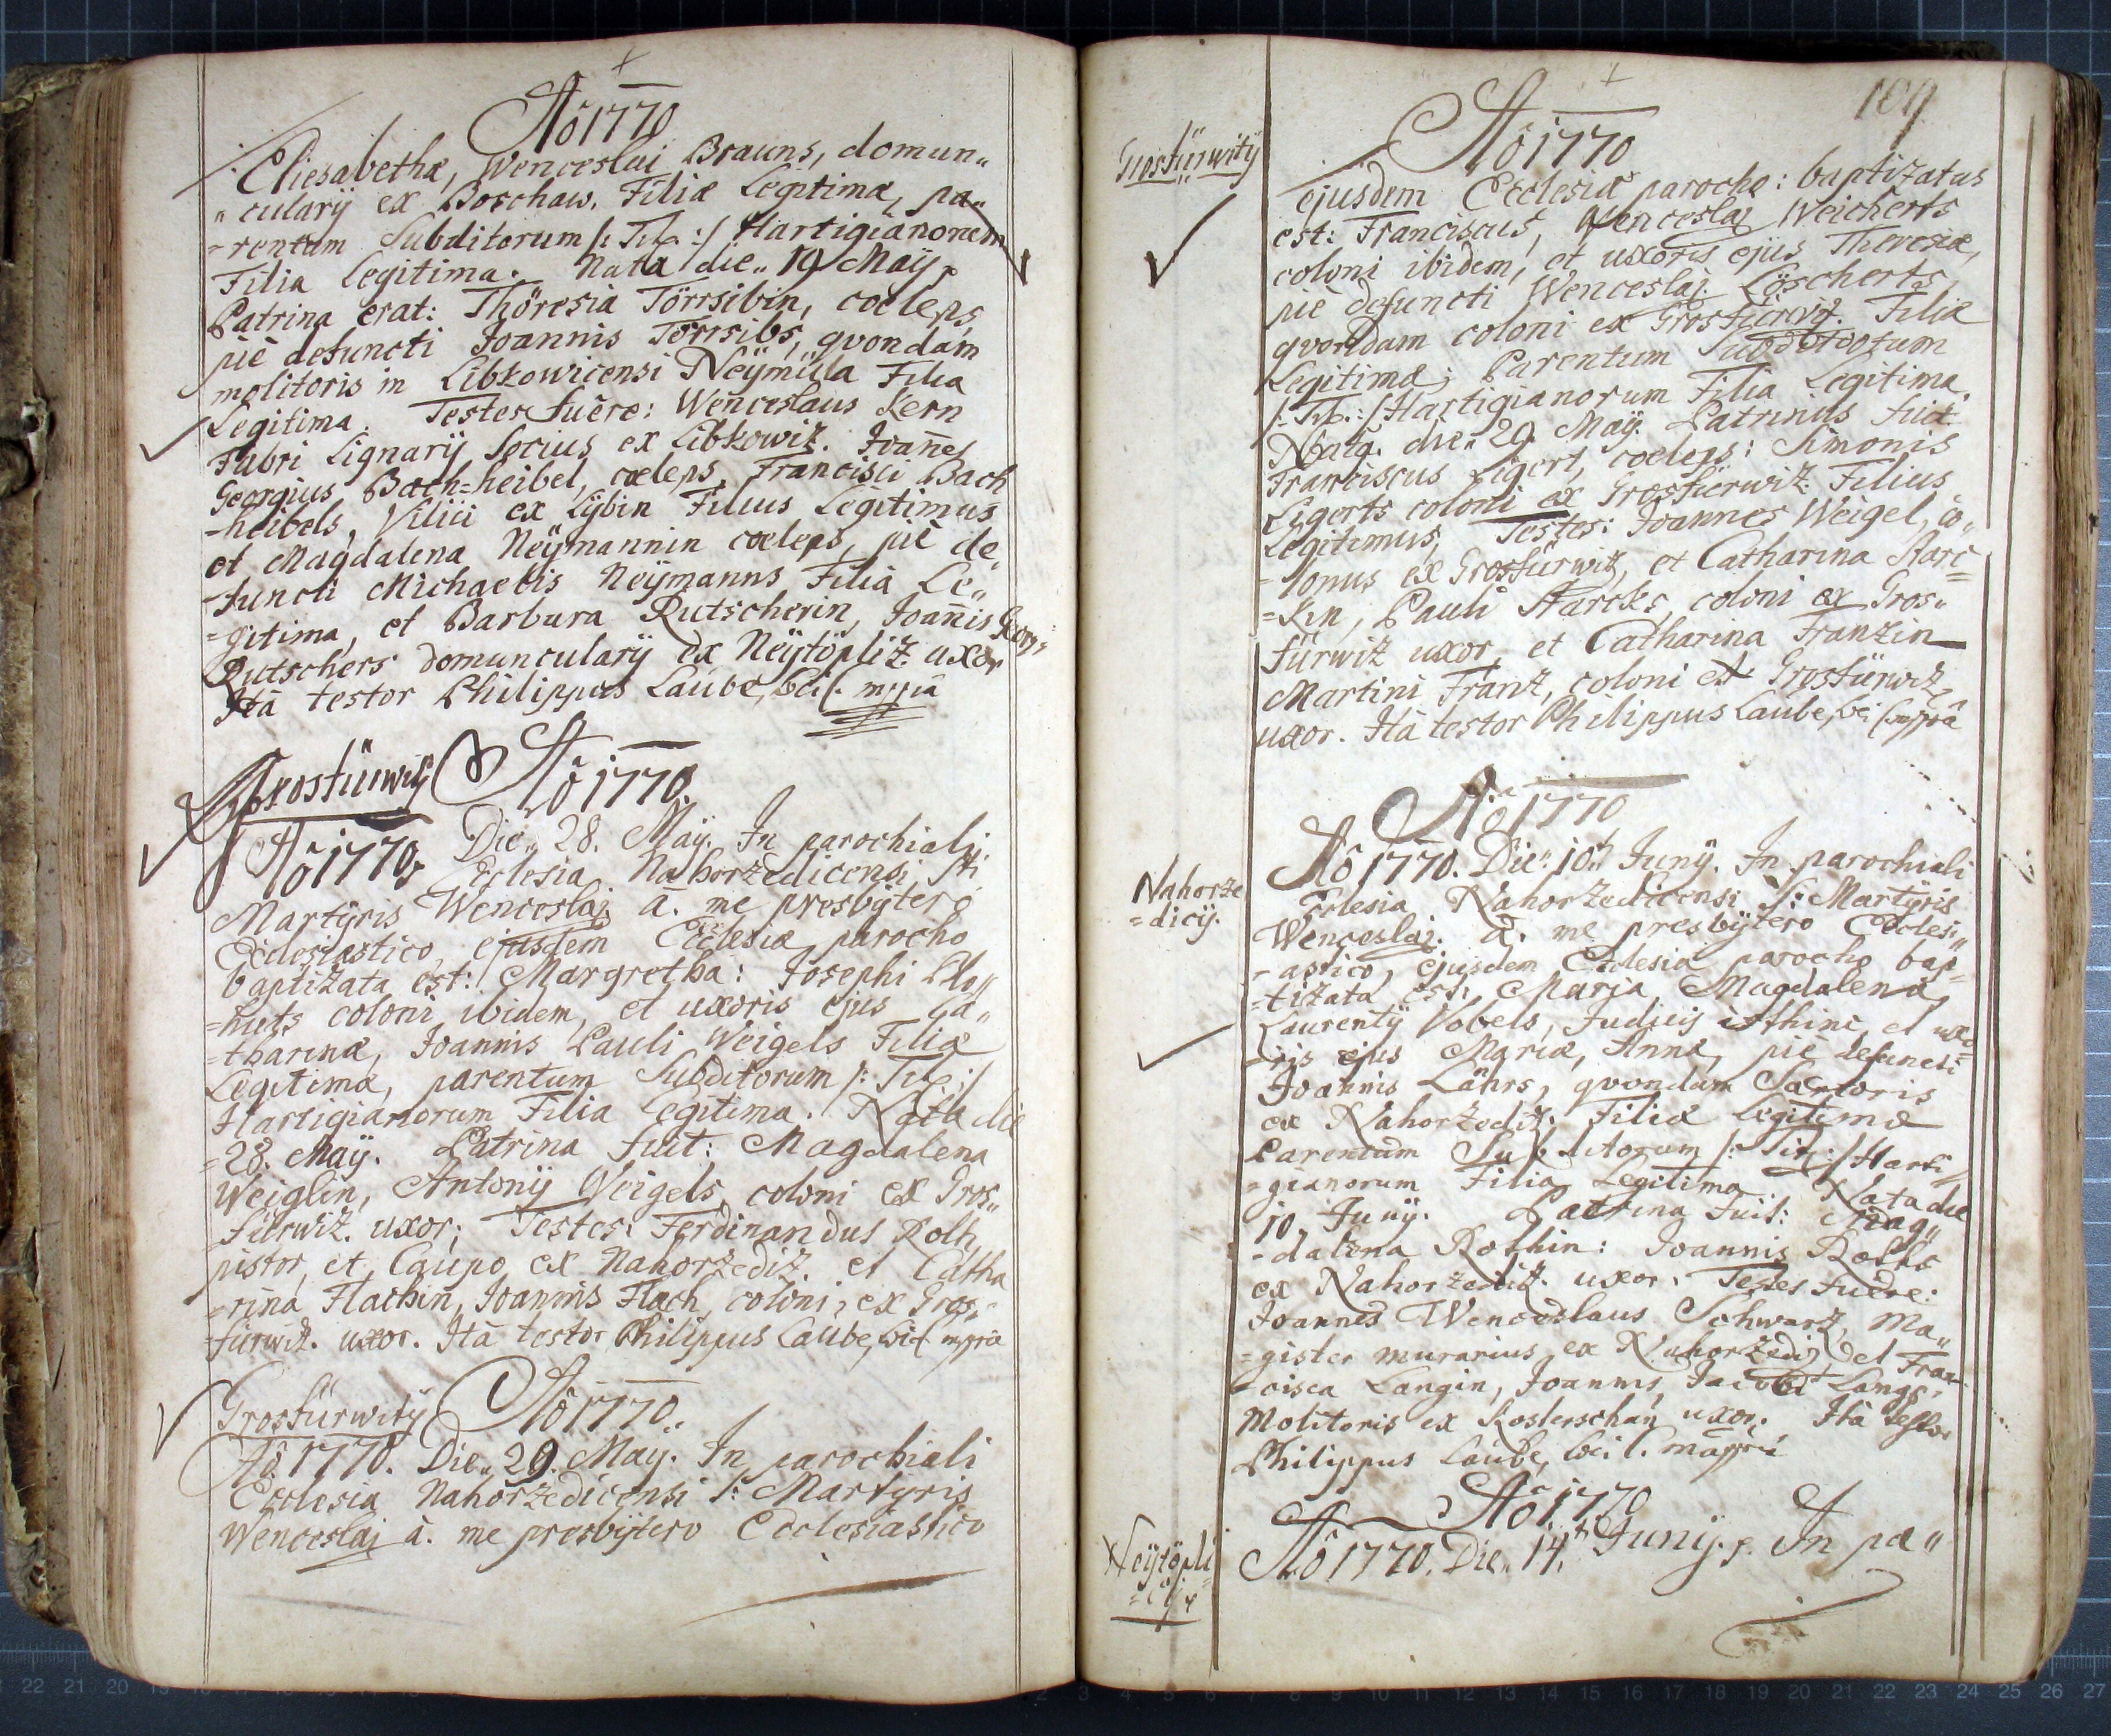 Aõ 1770
Eliesabethæ, Wenceslai Brauns, domun„
„cularÿ ex Boschaw. Filiæ Legitimæ, pa„
=rentum Subditorum /: Titl: :/ Hartigianorum
Filia Legitima. Nata die„ 19 Maÿ.
Patrina erat: Thöresia Törrsibin, coeleps,
piè defuncti Joannis Törrsibs, qvondam
molitoris in Libkowicensi Neÿmüla Filia
Legitima. Testes fuêre: Wenceslaus Kern
Fabri Lignarÿ Socius ex Libkowiz. Joanes
Georgius Bach=heibel, cœleps, Francisci Bach
=heibels, Vilici ex Lÿbin Filius Legitimus
et Magdalena Neÿmannin coeleps, piè de„
=functi Michaelis Neÿmanns Filia Le„
=gitima, et Barbara Rutscherin, Joanis Georg=
Rutschers domuncularÿ ex Neÿtöpliz. uxor
Ità testor Philippus Laube, Loci C. mppia
Grosfürwitÿ Aõ 1770.
Aõ 1770. Die„ 28. Maÿ. In parochiali
Ecclesia Nahorzedicensi Sti
Martÿris Wenceslaj. à. me presbÿtero
Ecclesiastico, ejusdem Ecclesiæ parocho
baptizata est: Margretha: Josephi Plo„
=hiets coloni ibidem, et uxoris ejus Ca„
=tharinæ, Joannis Pauli Weigels Filiæ
Legitimæ, parentum Subditorum /: Titl: :/
Hartigianorum Filia Legitima. Nata die
=28. Maÿ. Patrina fuit: Magdalena
Weiglin, Antonÿ Weigels, coloni ex Gros„
=fürwiz. uxor; Testes: Ferdinandus Roth,
pistor, et Caupo ex Nahorzediz. et Catha
=rina Flachin, Joannis Flach, coloni, ex Gros„
=fürwiz. uxor. Ità testor Philippus Laube, Loci C mppria
Grosfürwitÿ Aõ 1770.
Aõ 1770. Die„ 29. Maÿ. In parochiali
Ecclesia Nahorzedicensi S: Martÿris
Wenceslaj à. me presbÿtero Ecclesiastico
Grosfürwitÿ
Aõ 1770
ejusdem Ecclesiæ parocho: baptizatus
est: Franciscus, Wenceslaj Weicherts
coloni ibidem, et uxoris ejus Theresiæ,
piè defuncti Wenceslaj Löscherts,
qvondam coloni ex Grosfürwiz. Filiæ
Legitimæ; Parentum Subditorum
/: Titl. :/ Hartigianorum Filia Legitima.
Natg. die„ 29. Maÿ. Patrinus fuit
Franciscus Ligert, coeleps: Simonis
Ligerts coloni ex Grosfürwiz. Filius
Legitimus, Testes: Joannes Weigel, co„
=lonus ex Grosfürwiz, et Catharina Starc=
=kin, Pauli Starcks, coloni ex Gros„
fürwiz uxor, et Catharina Franzin
Martini Franz, coloni ex Grosfürwiz
uxor. Ità testor Philippus Laube, Loci C mppria
Aõ 1770
Nahorze
=dicÿ.
Aõ 1770. Die„ 10. Junÿ. In parochiali
Eclesia Nahorzedicensi S: Martÿris
Wenceslaj. à. me presbÿtero Ecclesi„
=astico, ejusdem Eclesiæ parocho bap=
=tizata est: Maria Magdalena,
Laurentÿ Vobels, Judicis isthinc, et uxo=
=ris ejus Mariæ, Annæ, piè defuncti
Joannis Lährs, qvondam Sartoris
ex Nahorzediz. Filiæ Legitimæ
Parentum Subditorum /: Titl: :/ Harti„
=gianorum Filia Legitima Nata die
10. Junÿ. Patrina fuit: Mag„
=dalena Rothin: Joannis Roths
ex Nahorzediz. uxor. Testes fuêre:
Joannes Wenceslaus Schwarz, Ma„
=gister murarius, ex Nahorzediz et Fran
=cisca Langin, Joannis, Jacobi Langs,
Molitoris ex Kosterschan uxor. Ità testor
Philippus Laube, Loci C. mappriâ
Aõ 1770
Neÿtöpli
=cÿ.
Aõ 1770. Die„ 14. Junÿ. In pa„